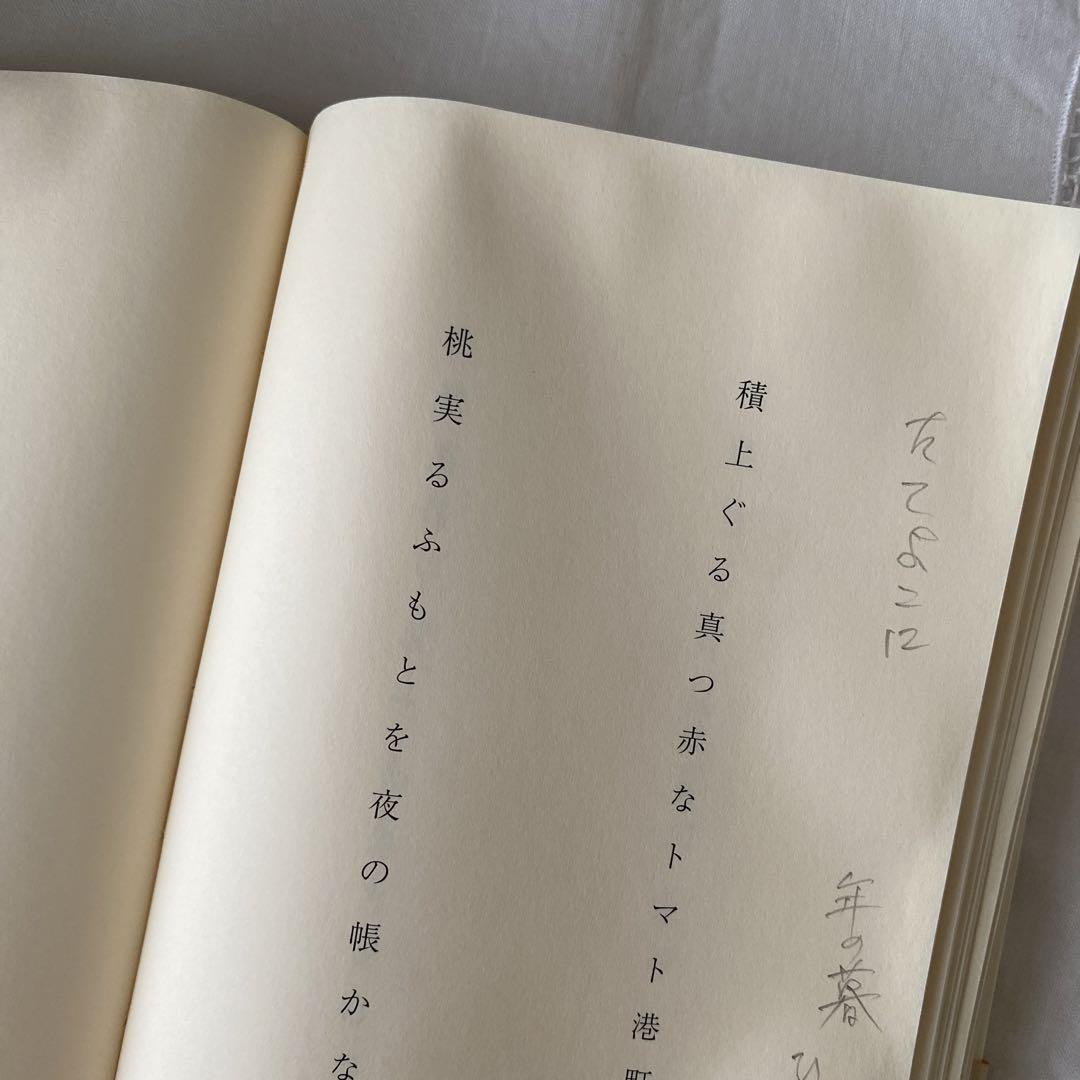 たてよこに 年の暮
積上ぐる真つ赤なトマト港町
桃実るふもとを夜の帳かな